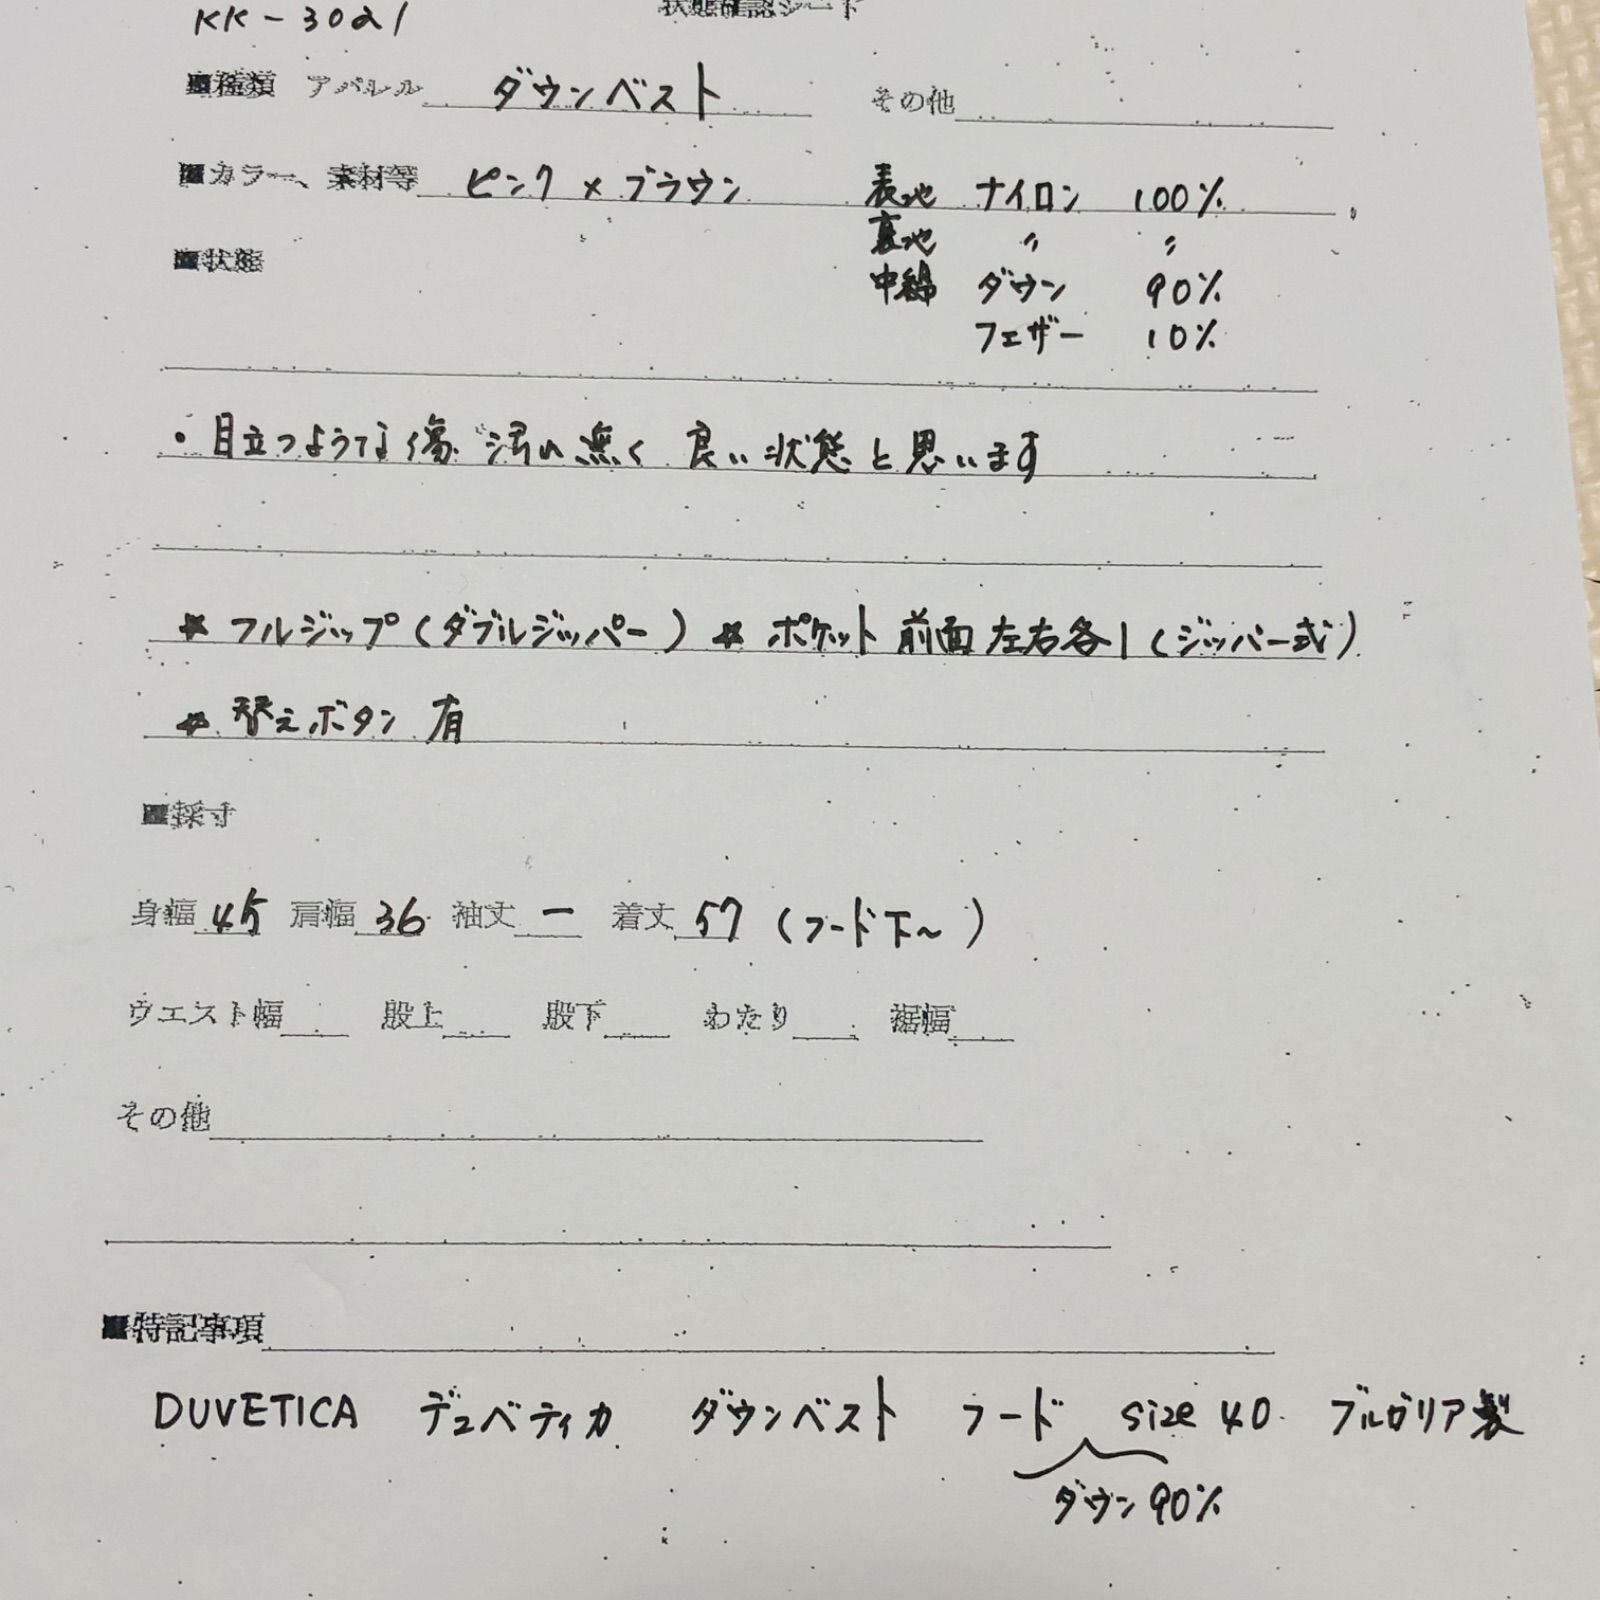 KK-3021
状態確認シート
■種類 アパレル ダウンベスト その他
■カラー、素材等 ピンク×ブラウン 表地 ナイロン 100%
裏地 〃 〃
■状態
中綿 ダウン 90%
フェザー 10%
・目立つような傷 汚れ 無く 良い状態と思います
* フルジップ(ダブルジッパー) * ポケット 前面 左右各1(ジッパー式)
* 替えボタン 有
■採寸
身幅 45 肩幅 36 袖丈 ー 着丈 57 (フード下~)
ウエスト幅 股上 股下 わたり 裾幅
その他
■特記事項
DUVETICA デュベティカ ダウンベスト フード size 40 ブルガリア製
ダウン90%